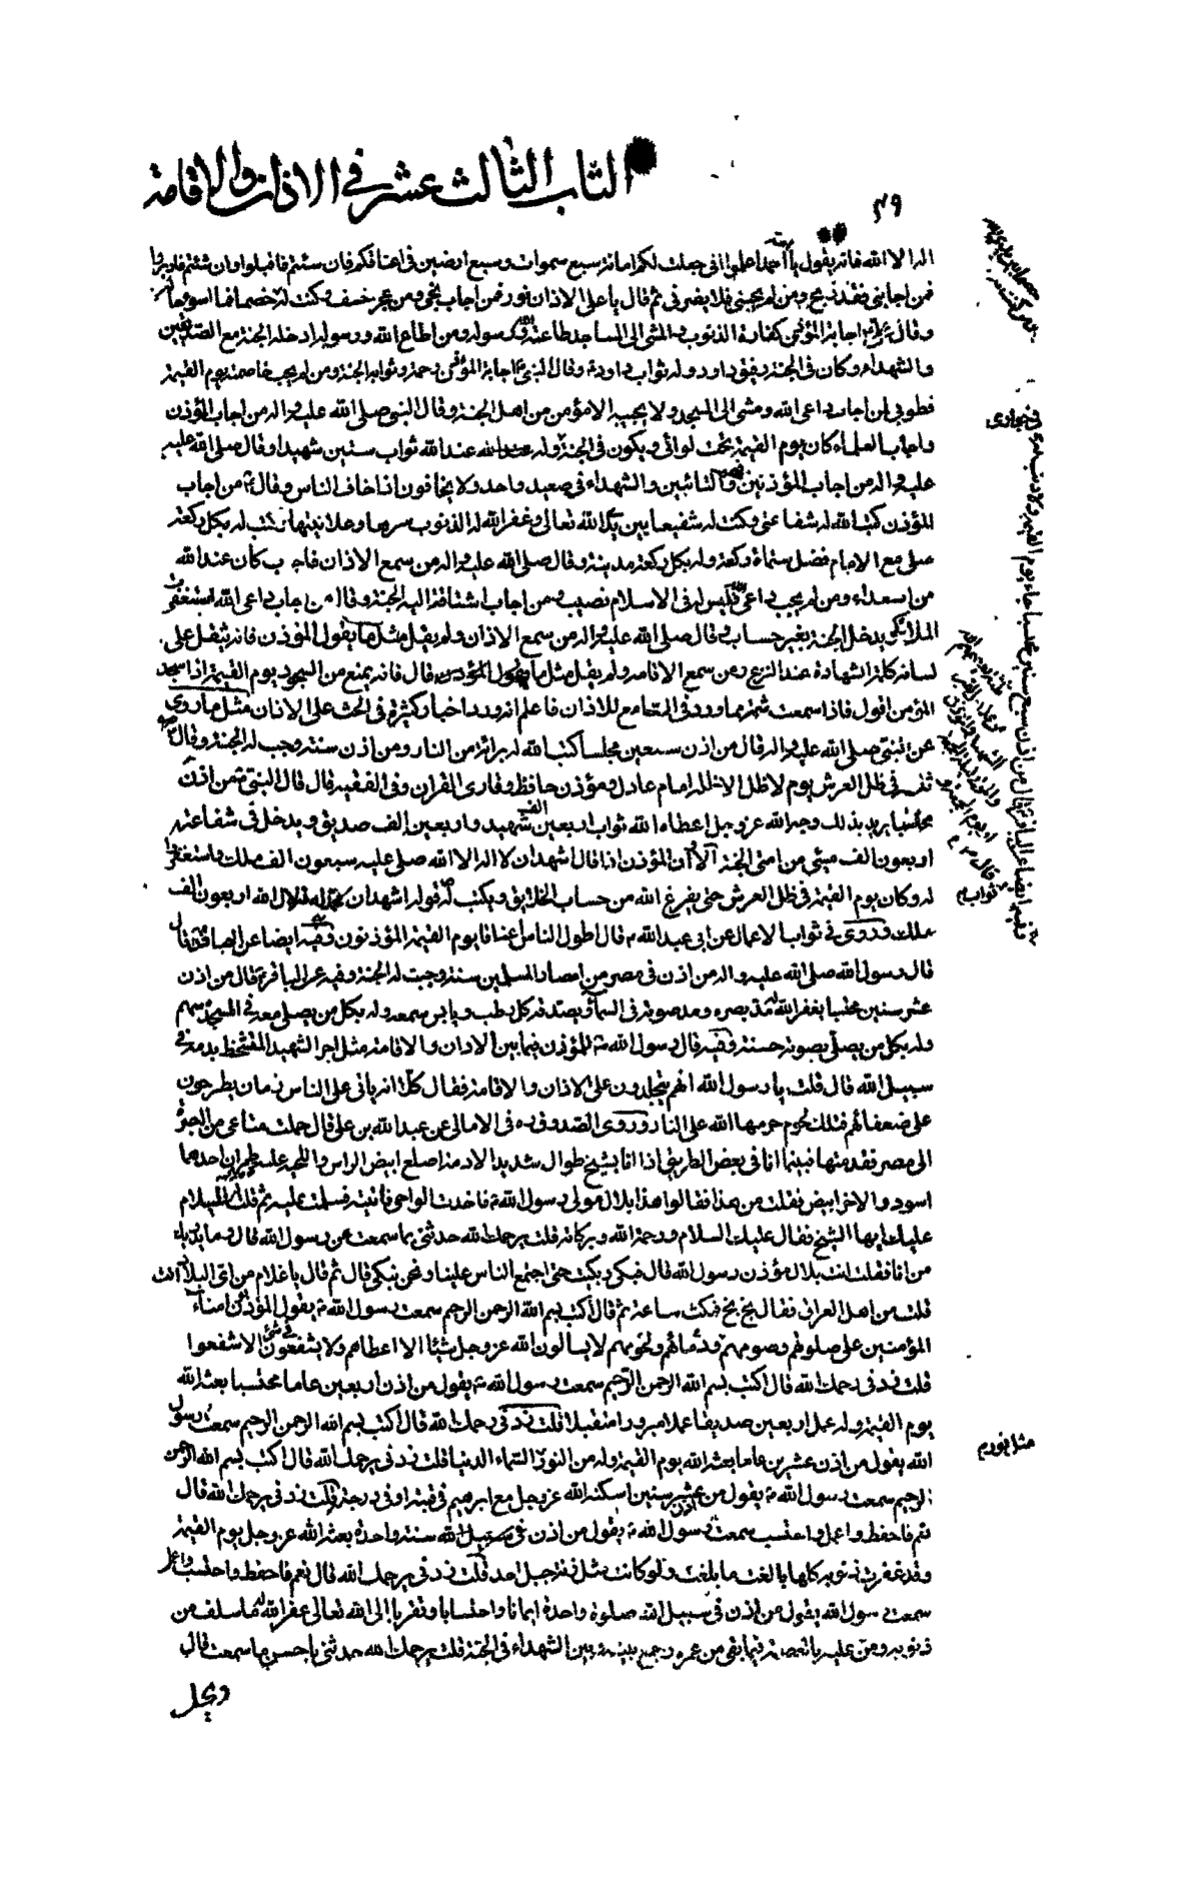 الباب الثالث عشر في الاذان والاقامة
٤٩
اله الا الله فانه يقول يا امة احمد اعلموا اني جعلت لكم امانة سبع سموات وسبع ارضين في اعناقكم فان شئتم فاقبلوا وان شئتم فادبروا
فمن اجابني فقد ربح ومن لم يجبني فلا يضرني ثم قال يا علي الاذان نور فمن اجاب نجى ومن عجز خسف وكنت له خصما
وقال اجابة المؤذن كفارة الذنوب والمشي الى المساجد طاعة الله ورسوله ومن اطاع الله ورسوله ادخله الجنة مع الصديقين
والشهداء وكان في الجنة رفيق داود وله ثواب داود وقال النبي اجابة المؤذن رحمة وثوابه الجنة ومن لم يجب خاصمته يوم القيمة
فطوبى لمن اجاب داعي الله ومشى الى المسجد ولا يجيبه الا مؤمن من اهل الجنة وقال النبي صلى الله عليه واله من اجاب المؤذن
واجاب العلماء كان يوم القيمة تحت لوائي ويكون في الجنة وله عند الله ثواب ستين شهيدا وقال صلى الله عليه
عليه واله من اجاب المؤذنين والتائبين والشهداء في صعيد واحد ولا يخافون اذا خاف الناس وقال من اجاب
المؤذن كتب الله له شفاعتي وكنت له شفيعا بين يدي الله تعالى وغفر الله له الذنوب سرها وعلانيتها وكتب له بكل ركعة
صلى مع الامام فضل ستمائة ركعة وله بكل ركعة مدينة وقال صلى الله عليه واله من سمع الاذان فاجاب كان عند الله
من السعداء ومن لم يجب داعي الله فليس له في الاسلام نصيب ومن اجاب اشتاقت اليه الجنة وقال من اجاب داعي الله استغفرت
الملائكة ويدخل الجنة بغير حساب وقال صلى الله عليه واله من سمع الاذان ولم يقل مثل ما يقول المؤذن فانه يثقل على
لسانه كلمة الشهادة عند النزع ومن سمع الاقامة ولم يقل مثل ما يقول المؤذن قال فانه يمنع من السجود يوم القيمة اذا سجد
المؤمن اقول فاذا سمعت شمة مما ورد في السامع للاذان فاعلم انه ورد اخبار كثيرة في الحث على الاذان مثل ما روي
عن النبي صلى الله عليه واله قال من اذن سبعين مجلسا كتب الله له براءة من النار ومن اذن سنة وجب له الجنة وقال
ثلثة في ظل العرش يوم لا ظل الا ظله امام عادل ومؤذن حافظ وقارى القران وفي الفقيه قال قال النبي من اذن
محتسبا يريد بذلك وجه الله عز وجل اعطاه الله ثواب اربعين الف شهيد واربعين الف صديق ويدخل في شفاعته
اربعون الف مسيئ من امتي الجنة الا وان المؤذن اذا قال اشهد ان لا اله الا الله صلى عليه سبعون الف ملك واستغفروا
له وكان يوم القيمة في ظل العرش حتى يفرغ الله من حساب الخلايق ويكتب له قوله اشهد ان محمدا رسول الله اربعون الف
ملك وروي في ثواب الاعمال عن ابي عبد الله قال اطول الناس اعناقا يوم القيمة المؤذنون وفيه ايضا عن الصادق قال
قال رسول الله صلى الله عليه واله من اذن في مصر من امصار المسلمين سنة وجبت له الجنة وفيه عن الباقر قال من اذن
عشر سنين محتسبا يغفر الله له مد بصره ومد صوته في السماء ويصدقه كل رطب ويابس سمعه وله بكل من يصلي معه في المسجد سهم
وله بكل من يصلي بصوته حسنة وفيه قال رسول الله للمؤذن فيما بين الاذان والاقامة مثل اجر الشهيد المتشحط بدمه في
سبيل الله قال قلت يا رسول الله انهم يجتلدون على الاذان والاقامة فقال كلا انه ياتي على الناس زمان يطرحون
على ضعفائهم فتلك لحوم حرمها الله على النار وروى الصدوق في الامالي عن عبد الله بن علي قال حملت متاعي من البصرة
الى مصر فقدمتها فبينما انا في بعض الطريق اذا انا بشيخ طوال شديد الادمة اصلع ابيض الراس واللحية عليه طمران احدهما
اسود والاخر ابيض فقلت من هذا فقالوا هذا بلال مولى رسول الله فاخذت الواحي فاتيته فسلمت عليه ثم قلت له السلام
عليك ايها الشيخ فقال عليك السلام ورحمة الله وبركاته قلت يرحمك الله حدثني بما سمعت من رسول الله قال وما يدريك
من انا فقلت انت بلال مؤذن رسول الله قال فبكى وبكيت حتى اجتمع الناس علينا ونحن نبكي قال ثم قال يا غلام من اي البلاد انت
قلت من اهل العراق فقال بخ بخ فمكث ساعة ثم قال اكتب بسم الله الرحمن الرحيم سمعت رسول الله يقول المؤذنون امناء
المؤمنين على صلوتهم وصومهم ودمائهم ولحومهم لا يسالون الله عز وجل شيئا الا اعطاهم ولا يشفعون في شئ الا شفعوا
قلت زدني رحمك الله قال اكتب بسم الله الرحمن الرحيم سمعت رسول الله يقول من اذن اربعين عاما محتسبا بعثه الله
يوم القيمة وله عمل اربعين صديقا عملا مبرورا متقبلا قلت زدني رحمك الله قال اكتب بسم الله الرحمن الرحيم سمعت رسول
الله يقول من اذن عشرين عاما بعثه الله يوم القيمة وله من النور السماء الدنيا قلت زدني يرحمك الله قال اكتب بسم الله الرحمن
الرحيم سمعت رسول الله يقول من اذن عشر سنين اسكنه الله عز وجل مع ابرهيم في قبته او في درجته قلت زدني يرحمك الله قال
نعم فاحفظ واعمل واحتسب سمعت رسول الله يقول من اذن في سبيل الله سنة واحدة بعثه الله عز وجل يوم القيمة
وقد غفرت ذنوبه كلها بالغت ما بلغت ولو كانت مثل زنة جبل احد قلت زدني يرحمك الله قال نعم فاحفظ واحتسب واعمل
سمعت رسول الله يقول من اذن في سبيل الله صلوة واحدة ايمانا واحتسابا وتقربا الى الله تعالى غفر الله له ما سلف من
ذنوبه ومن عليه بالعصمة فيما بقي من عمره وجمع بينه وبين الشهداء في الجنة قلت يرحمك الله حدثني باحسن ما سمعت قال
ويحك
وفيه ايضا عن الباقر قال من اذن سبع سنين محتسبا جاء يوم القيمة ولا ذنب له